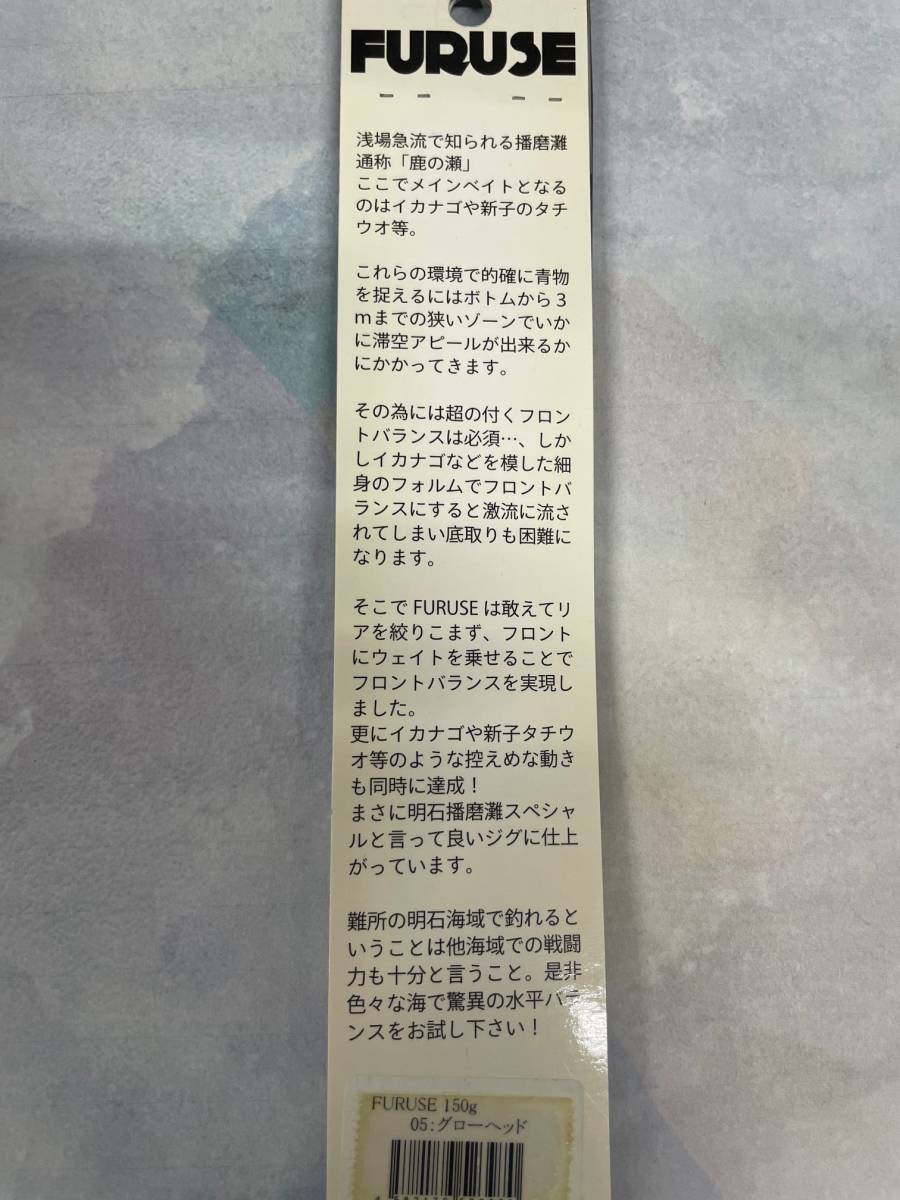 FURUSE
浅場急流で知られる播磨灘
通称「鹿の瀬」
ここでメインベイトとなる
のはイカナゴや新子のタチ
ウオ等。
これらの環境で的確に青物
を捉えるにはボトムから３
ｍまでの狭いゾーンでいか
に滞空アピールが出来るか
にかかってきます。
その為には超の付くフロン
トバランスは必須…、しか
しイカナゴなどを模した細
身のフォルムでフロントバ
ランスにすると激流に流さ
れてしまい底取りも困難に
なります。
そこで FURUSE は敢えてリ
アを絞りこまず、フロント
にウェイトを乗せることで
フロントバランスを実現し
ました。
更にイカナゴや新子タチウ
オ等のような控えめな動き
も同時に達成！
まさに明石播磨灘スペシャ
ルと言って良いジグに仕上
がっています。
難所の明石海域で釣れると
いうことは他海域での戦闘
力も十分と言うこと。是非
色々な海で驚異の水平バラ
ンスをお試し下さい！
FURUSE 150g
05:グローヘッド